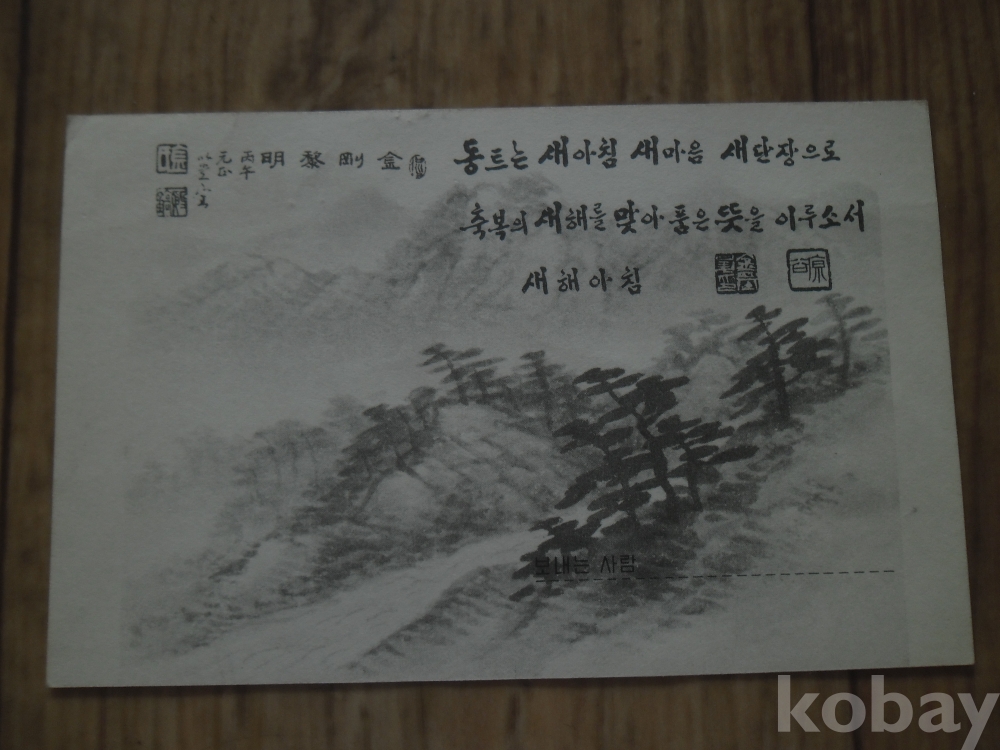 金剛黎明
丙午
元正
동트는 새아침 새마음 새단장으로
축복의 새해를 맞아 품은 뜻을 이루소서
새해아침
보내는 사람
kobay